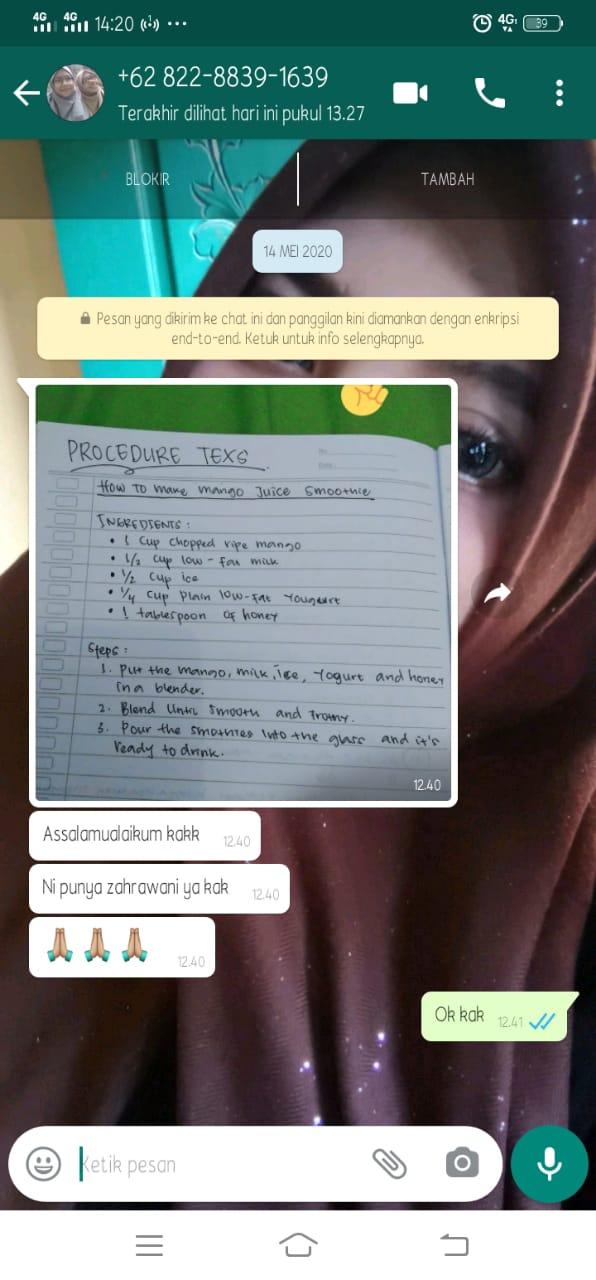 4G 4G 14:20 4G 39
+62 822-8839-1639
Terakhir dilihat hari ini pukul 13.27
BLOKIR TAMBAH
14 MEI 2020
Pesan yang dikirim ke chat ini dan panggilan kini diamankan dengan enkripsi
end-to-end. Ketuk untuk info selengkapnya.
PROCEDURE TEXS
No
Date
How To make mango Juice Smoothie
INGREDIENTS :
• 1 Cup chopped ripe mango
• 1/2 cup low - fat milk
• 1/2 cup ice
• 1/4 cup plain low-fat Yougurt
• 1 tablespoon of honey
Steps :
1. Put the mango, milk, ice, Yogurt and honey
in a blender.
2. Blend Until Smooth and Fromy.
3. Pour the smothies Into the glass and it's
ready to drink.
12.40
Assalamualaikum kakk 12.40
Ni punya zahrawani ya kak 12.40
12.40
Ok kak 12.41
Ketik pesan